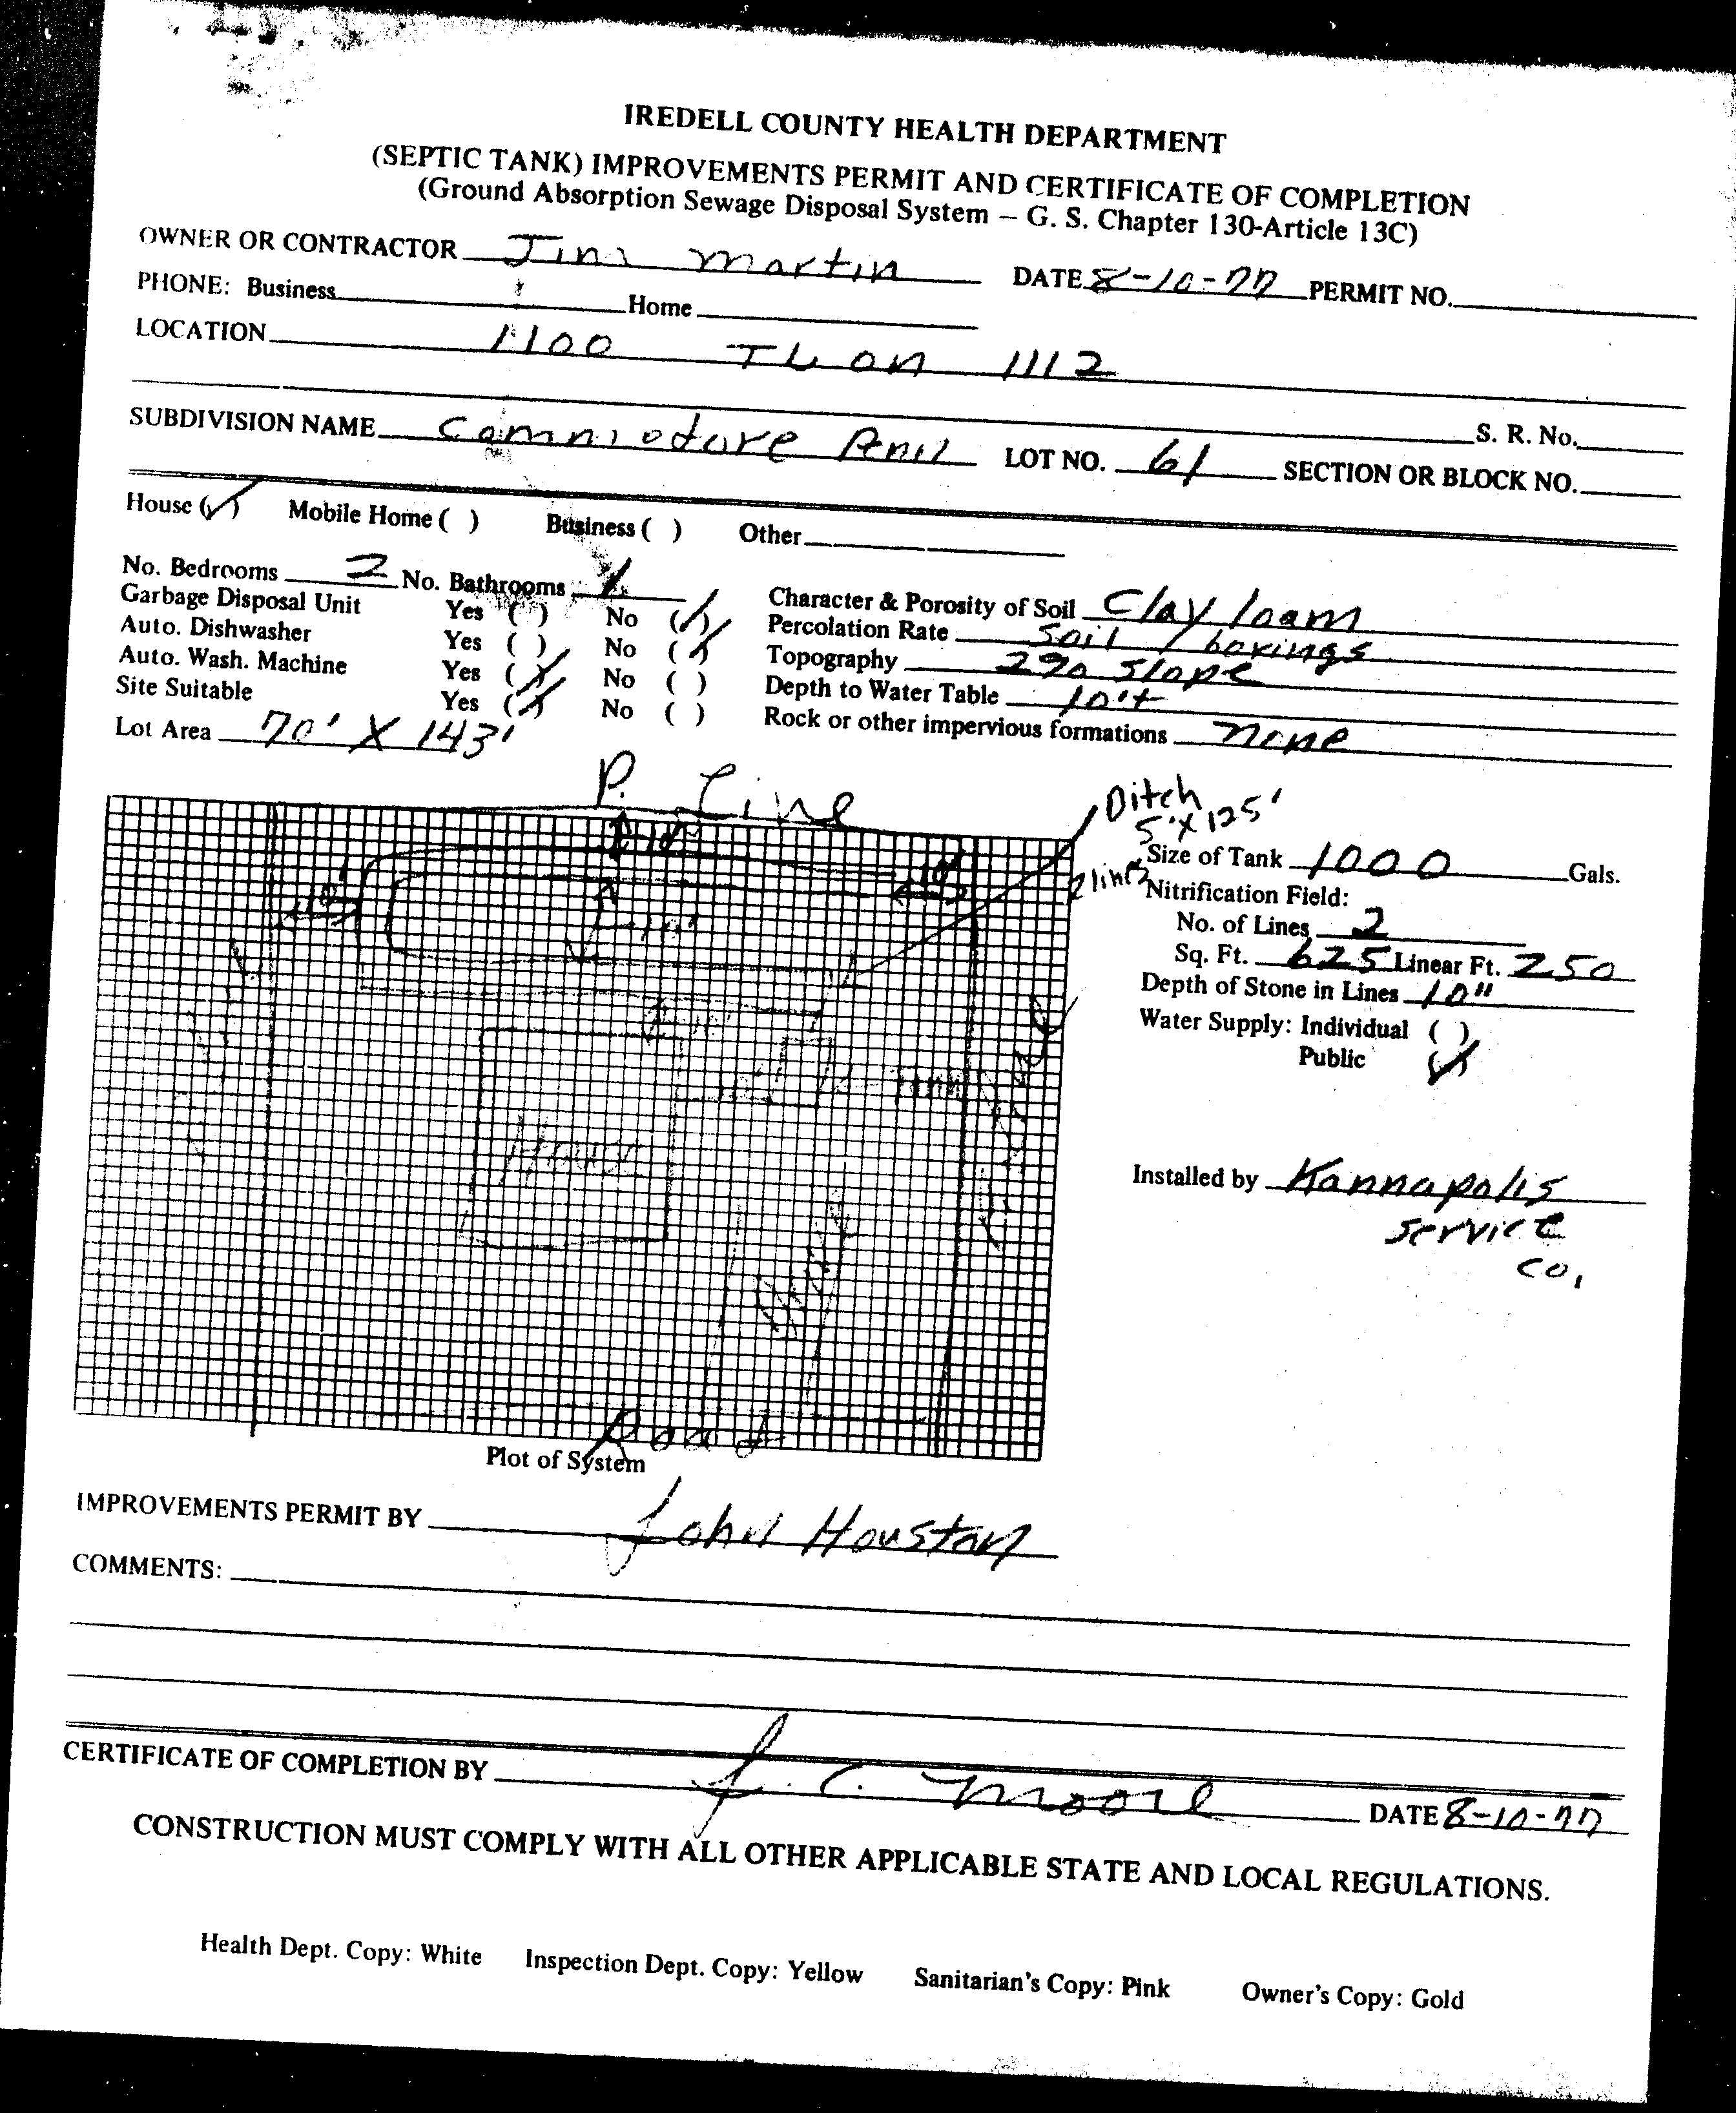 IREDELL COUNTY HEALTH DEPARTMENT
(SEPTIC TANK) IMPROVEMENTS PERMIT AND CERTIFICATE OF COMPLETION
(Ground Absorption Sewage Disposal System – G. S. Chapter 130-Article 13C)
OWNER OR CONTRACTOR Jim Martin DATE 8-10-77 PERMIT NO.
PHONE: Business Home
LOCATION 1100 TL on 1112
S. R. No.
SUBDIVISION NAME Commodore Penil LOT NO. 61 SECTION OR BLOCK NO.
House (✓) Mobile Home ( ) Business ( ) Other
No. Bedrooms 2 No. Bathrooms 1
Garbage Disposal Unit Yes ( ) No (✓)
Auto. Dishwasher Yes ( ) No (✓)
Auto. Wash. Machine Yes (✓) No ( )
Site Suitable Yes (✓) No ( )
Lot Area 70' X 143'
Character & Porosity of Soil Clay loam
Percolation Rate Soil / borings
Topography 2% Slope
Depth to Water Table 10'+
Rock or other impervious formations none
P. Line
10'
10'
10'
10'
House
Road
Ditch
5' X 125'
2 lines
Size of Tank 1000 Gals.
Nitrification Field:
No. of Lines 2
Sq. Ft. 625 Linear Ft. 250
Depth of Stone in Lines 10"
Water Supply: Individual ( )
Public (✓)
Installed by Kannapolis
Service
Co.
Plot of System
IMPROVEMENTS PERMIT BY John Houston
COMMENTS:
CERTIFICATE OF COMPLETION BY J. C. Moore DATE 8-10-77
CONSTRUCTION MUST COMPLY WITH ALL OTHER APPLICABLE STATE AND LOCAL REGULATIONS.
Health Dept. Copy: White Inspection Dept. Copy: Yellow Sanitarian's Copy: Pink Owner's Copy: Gold